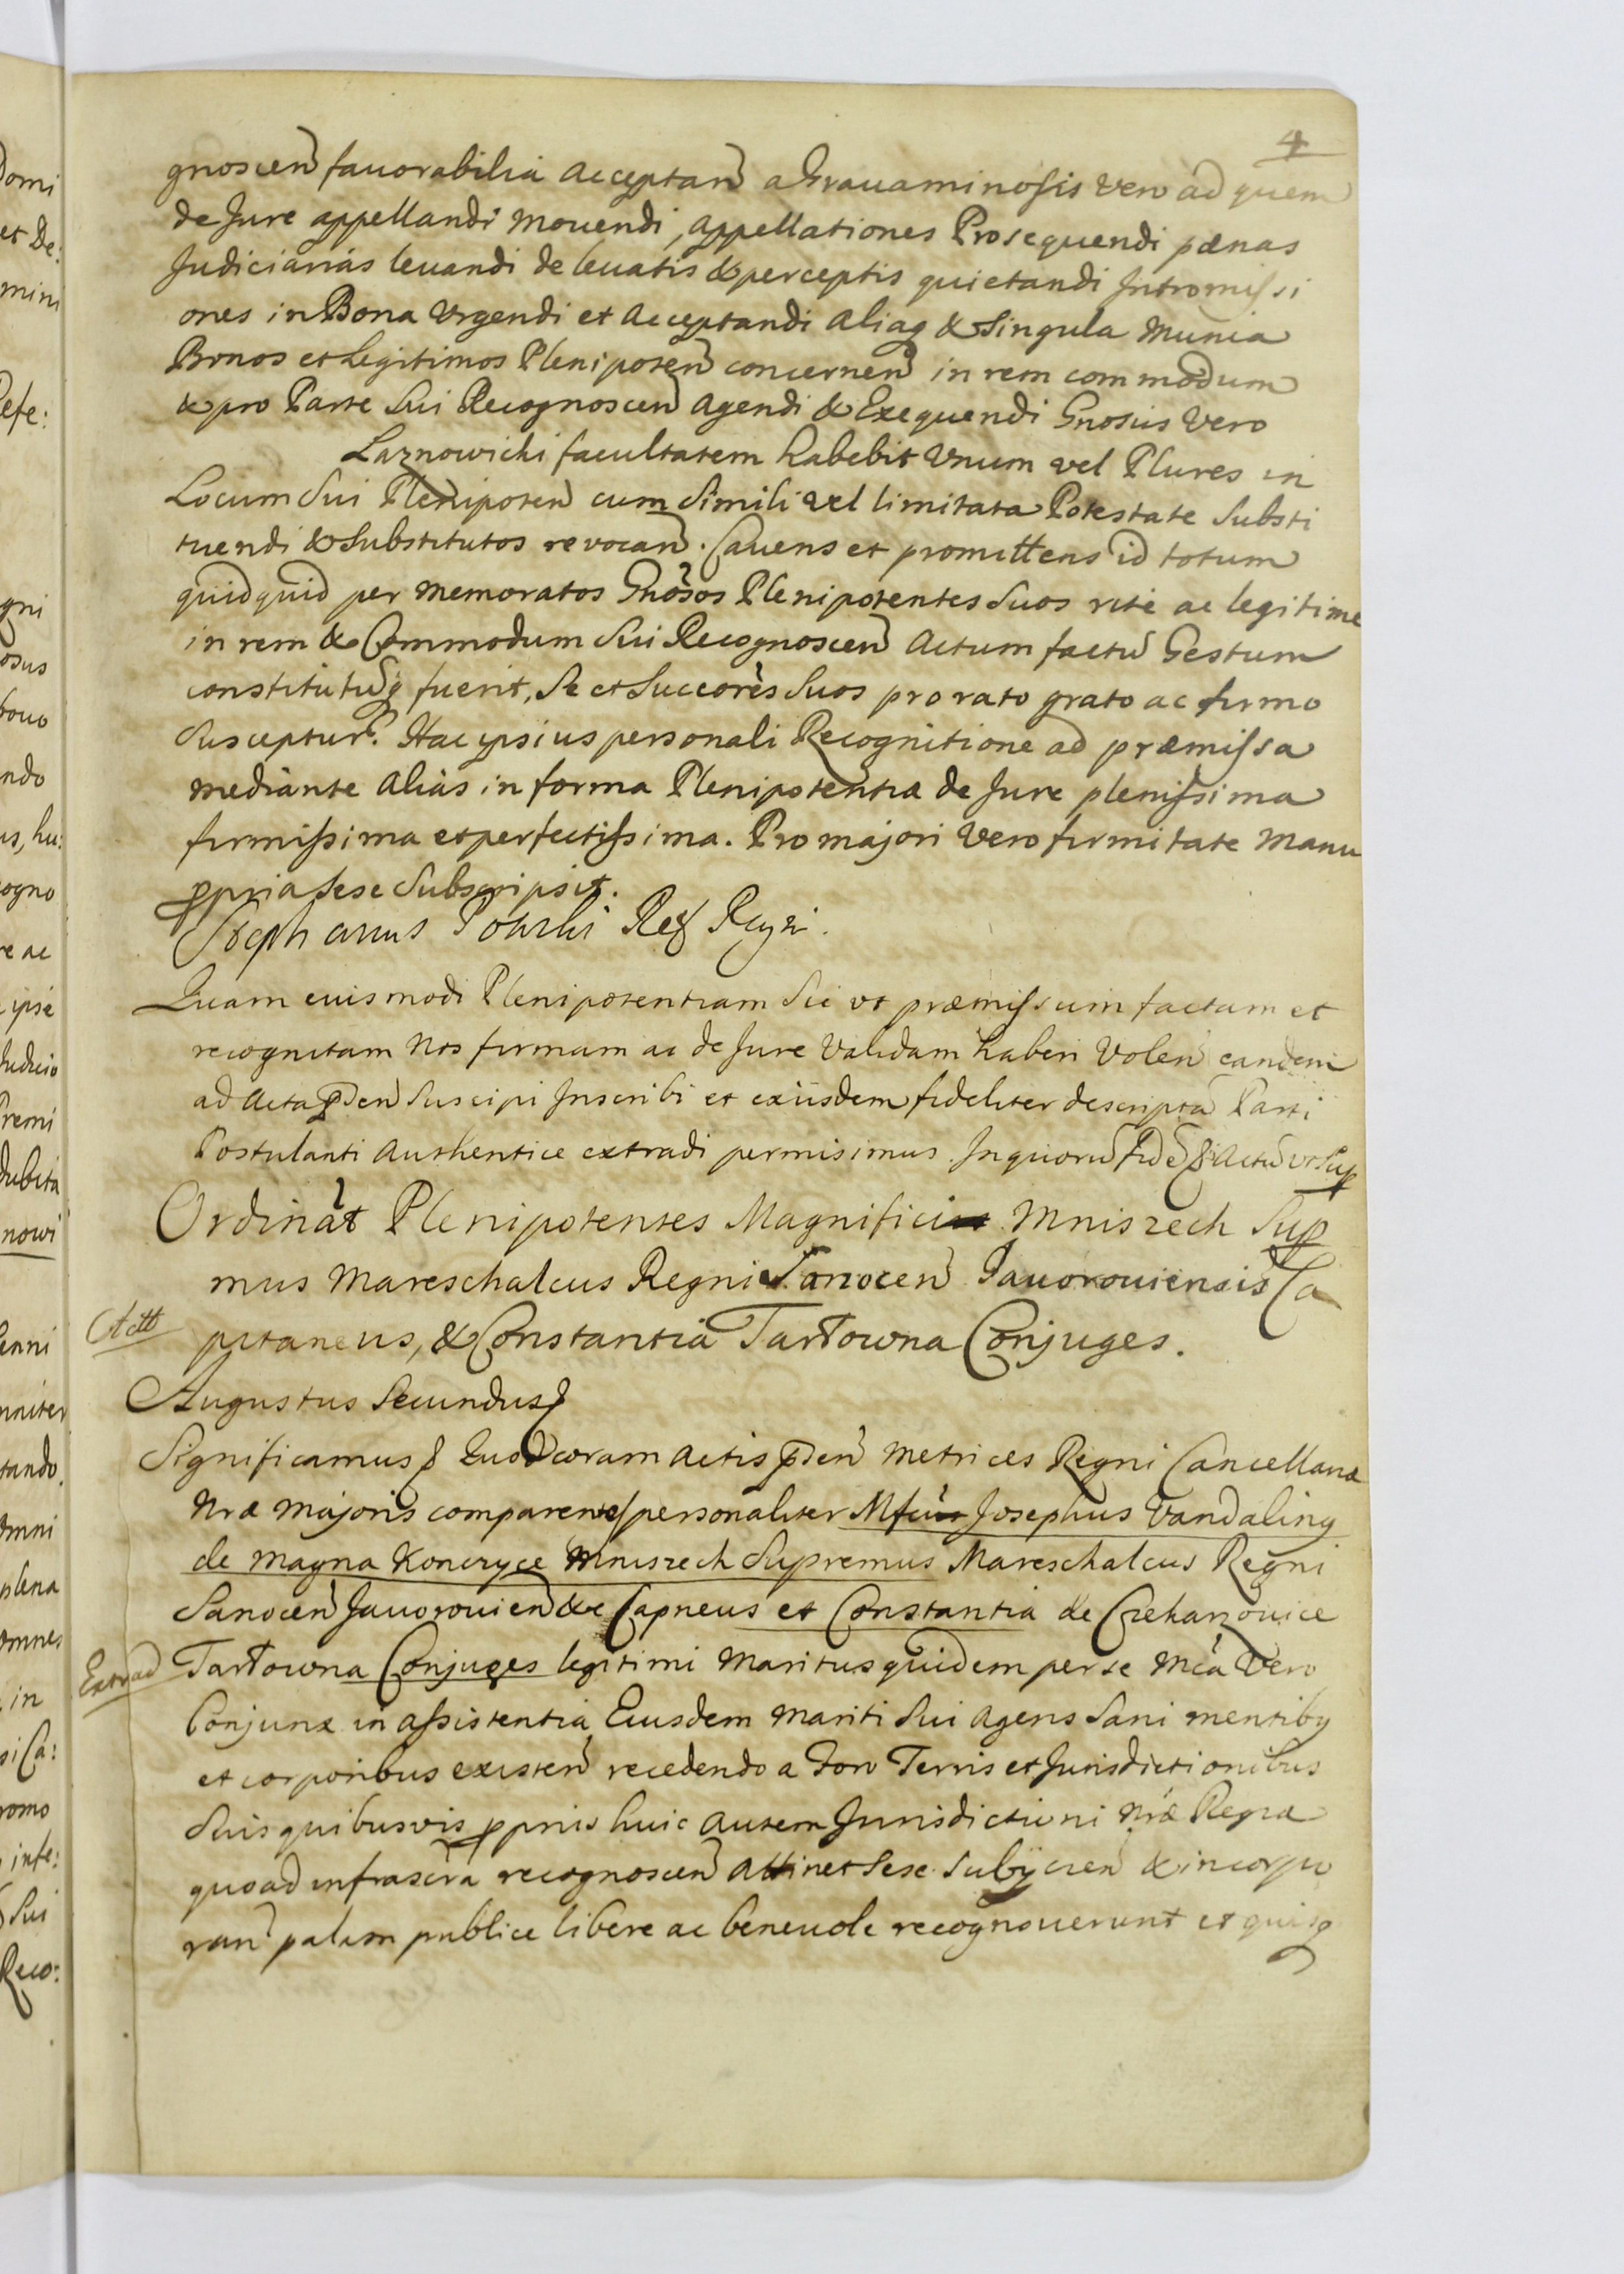 4
gnoscen favorabilia acceptan a Gravaminosis vero ad quem
de Jure appellandi movendi, appellationes Prosequendi pænas
Judiciarias levandi de levatis & perceptis quietandi Intromissi
ones in Bona Urgendi et acceptandi aliaq & singula munia
Bonos et Legitimos Plenipoten concernen in rem commodum
& pro Parte sui Recognoscen agendi & Exequendi Gnosus vero
Laznowicki facultatem habebit unum vel Plures in
Locum sui Plenipoten cum simili vel limitata Potestate substi
tuendi & substitutos revocan. Cavens et promittens id totum
quidquid per memoratos Gnosos Plenipotentes suos rite ac legitime
in rem & Commodum sui Recognoscen actum factu Gestum
constitutuq fuerit, se et succores suos pro rato grato ac firmo
susceptur. Hac ipsius personali Recognitione ad præmissa
mediante alias in forma Plenipotentiæ de Jure plenissima
firmissima et perfectissima. Pro majori vero firmitate manu
ppria sese subscripsit.
Stephanus Potocki Ref Regni.
Quam euismodi Plenipotentiam sic ut præmissum factam et
recognitam nos firmam ac de Jure validam haberi volen eandem
ad acta pden suscipi Inscribi et exiisdem fideliter descripta Parti
Postulanti authentice extradi permisimus. In quoru fide & actu ut sup
Ordinat Plenipotentes Magnifici Mniszech Sup
mus Mareschalcus Regni Sanocen Javoroviensis Ca
pitaneus, & Constantia Tarłowna Conjuges.
Augustus Secundus &
Significamus & Quod coram actis pden metrices Regni Cancellariæ
nræ majoris comparentes personaliter Mfcus Josephus Vandalinq
de magna Konczyce Mniszech Supremus Mareschalcus Regni
Sanocen Javorovien &c Capneus et Constantia de Czekarzovice
Extrad
Tarłowna Conjuges legitimi maritus quidem per se Mca vero
Conjunx in assistentia Eiusdem mariti sui agens sani mentibq
et corporibus existen recedendo a Foro Terris et Jurisdictionibus
suis quibusvis ppriis huic autem Jurisdictioni nræ Regiæ
quoad infrascra recognoscen attinet sese subijcien & incorpo
ran palam publice libere ac benevole recognoverunt et quisq